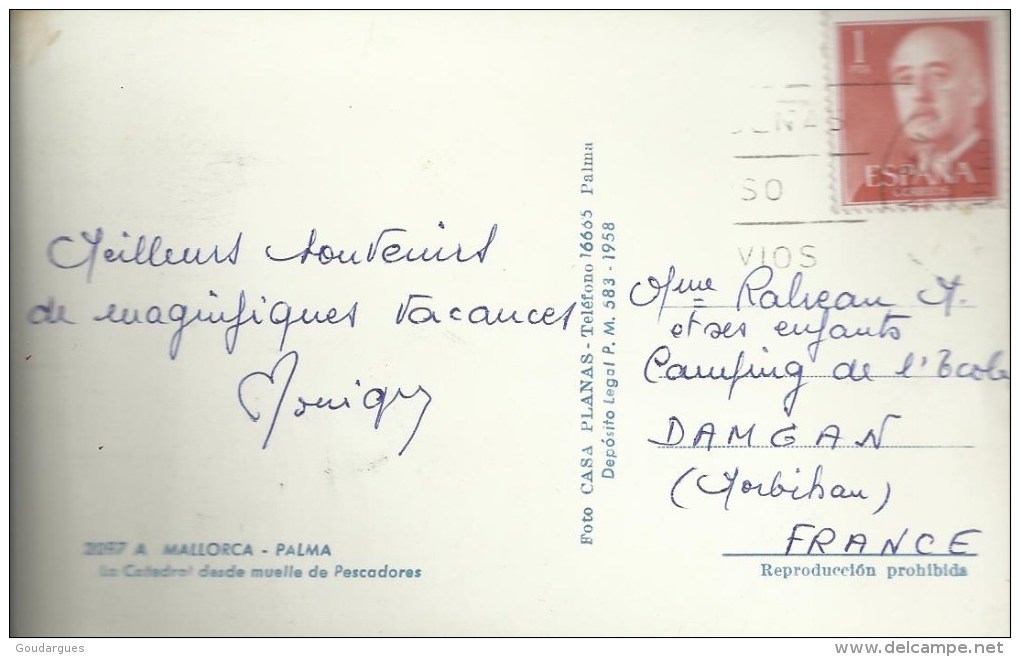 Meilleurs souvenirs
de magnifiques vacances
Monique
2297 A MALLORCA - PALMA
La Catedral desde muelle de Pescadores
Foto CASA PLANAS - Teléfono 16665 Palma
Depósito Legal P. M. 583 - 1958
1
ESPAÑA
CORREOS
SO
VIOS
Mme M.
et ses enfants
Camping de l'Ecole
DAMGAN
(Morbihan)
FRANCE
Reproducción prohibida
Goudargues
delcampe.net